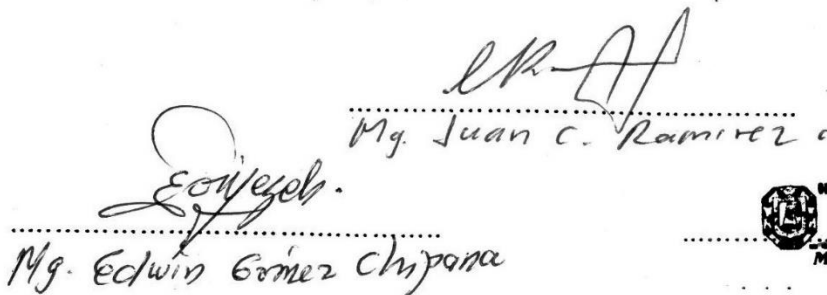 Mg. Juan C. Ramirez
Mg. Edwin Gómez Chipana